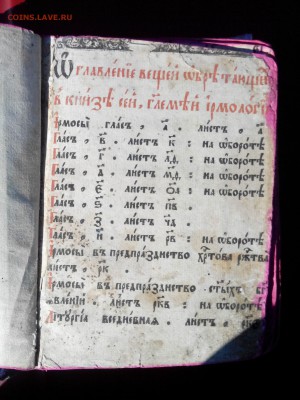 COINS.LAVE.RU
Ѡ҆главле́нїе веще́й ѡ҆брѣта́ющи
в̾ кни́зѣ се́й, гл҃емѣ́й і҆рмоло́гїи
І҆рмосы̀ гла́съ · а҃ · ли́стъ · а҃
Гла́съ · в҃ · ли́стъ к҃ : на ѡ҆боро́тѣ
Гла́съ · г҃ · ли́стъ л҃д : на ѡ҆боро́тѣ
Гла́съ · д҃ · ли́стъ м҃д : на ѡ҆боро́тѣ
Гла́съ · є҃ · ли́стъ : на ѡ҆боро́тѣ
Гла́съ · ѕ҃ · ли́стъ п҃в ·
Гла́съ · з҃ · ли́стъ ч҃д ·
Гла́съ · и҃ · ли́стъ р҃в : на ѡ҆боро́тѣ
І҆рмосы̀ въ предпра́зднство хр҃то́ва ржⷭ҇тва̀
ли́стъ ·
І҆рмосы̀ въ предпра́зднство ст҃ы́хъ б҃г
ѧ҆вле́нїи · ли́стъ р҃кв : на ѡ҆боро́тѣ
Літꙋргі́а вседне́внаѧ · ли́стъ ·